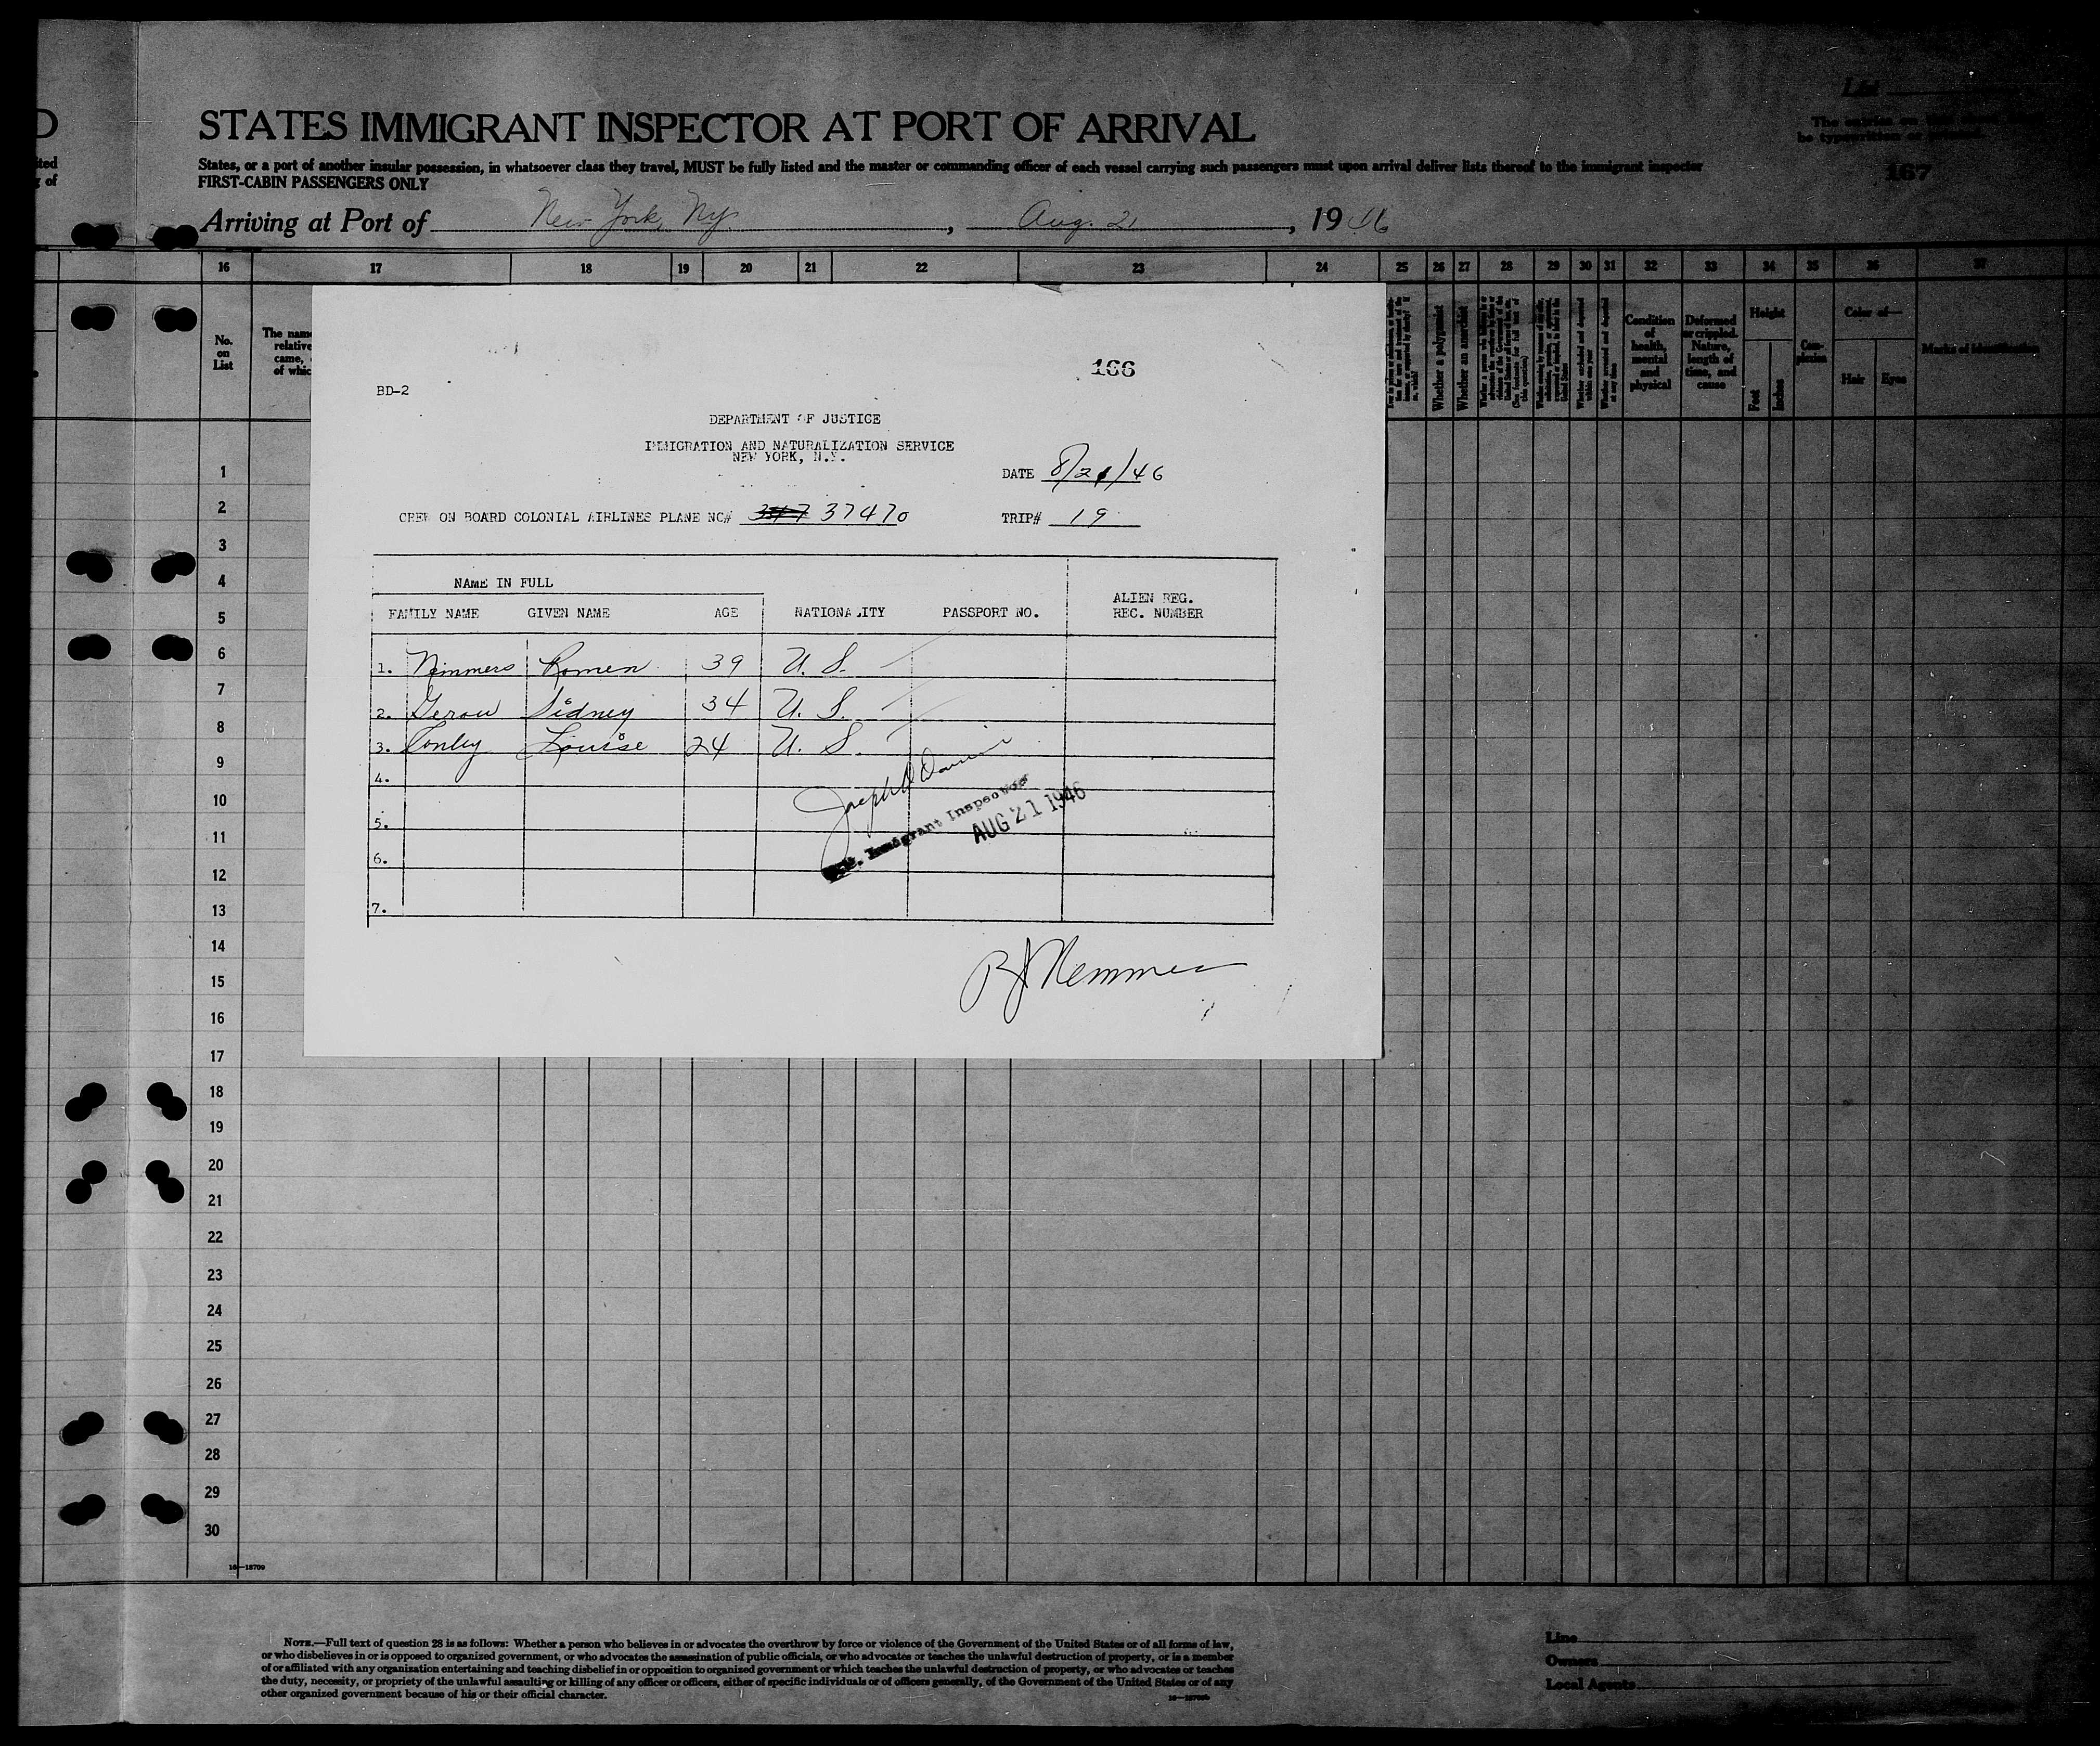 D
STATES IMMIGRANT INSPECTOR AT PORT OF ARRIVAL
List
ited
States, or a port of another insular possession, in whatsoever class they travel, MUST be fully listed and the master or commanding officer of each vessel carrying such passengers must upon arrival deliver lists thereof to the immigrant inspector
of
FIRST-CABIN PASSENGERS ONLY
167
Arriving at Port of New York, Ny. , Aug. 21 , 1946
16 17 18 19 20 21 22 23 24 25 26 27 28 29 30 31 32 33 34 35 36 37
No. on List
The name
relative
came,
of whic
Whether a polygamist
Whether an anarchist
Condition of health, mental and physical
Deformed or crippled. Nature, length of time, and cause
Height
Feet
Inches
Complexion
Color of—
Hair
Eyes
Marks of identification
166
BD-2
DEPARTMENT OF JUSTICE
IMMIGRATION AND NATURALIZATION SERVICE
NEW YORK, N.Y.
DATE 8/21/46
CREW ON BOARD COLONIAL AIRLINES PLANE NC# 37470 TRIP# 19
NAME IN FULL
FAMILY NAME GIVEN NAME AGE NATIONALITY PASSPORT NO. ALIEN REG. REC. NUMBER
1. Nemmers Romen 39 U. S.
2. Gerow Sidney 34 U. S.
3. Conley Louise 24 U. S.
4.
5.
6.
7.
Joseph
Immigrant Inspector
AUG 21 1946
R J Nemmers
1
2
3
4
5
6
7
8
9
10
11
12
13
14
15
16
17
18
19
20
21
22
23
24
25
26
27
28
29
30
16—18709
NOTE.—Full text of question 28 is as follows: Whether a person who believes in or advocates the overthrow by force or violence of the Government of the United States or of all forms of law,
or who disbelieves in or is opposed to organized government, or who advocates the assassination of public officials, or who advocates or teaches the unlawful destruction of property, or is a member
of or affiliated with any organization entertaining and teaching disbelief in or opposition to organized government or which teaches the unlawful destruction of property, or who advocates or teaches
the duty, necessity, or propriety of the unlawful assaulting or killing of any officer or officers, either of specific individuals or of officers generally, of the Government of the United States or of any
other organized government because of his or their official character.
Line
Owners
Local Agents